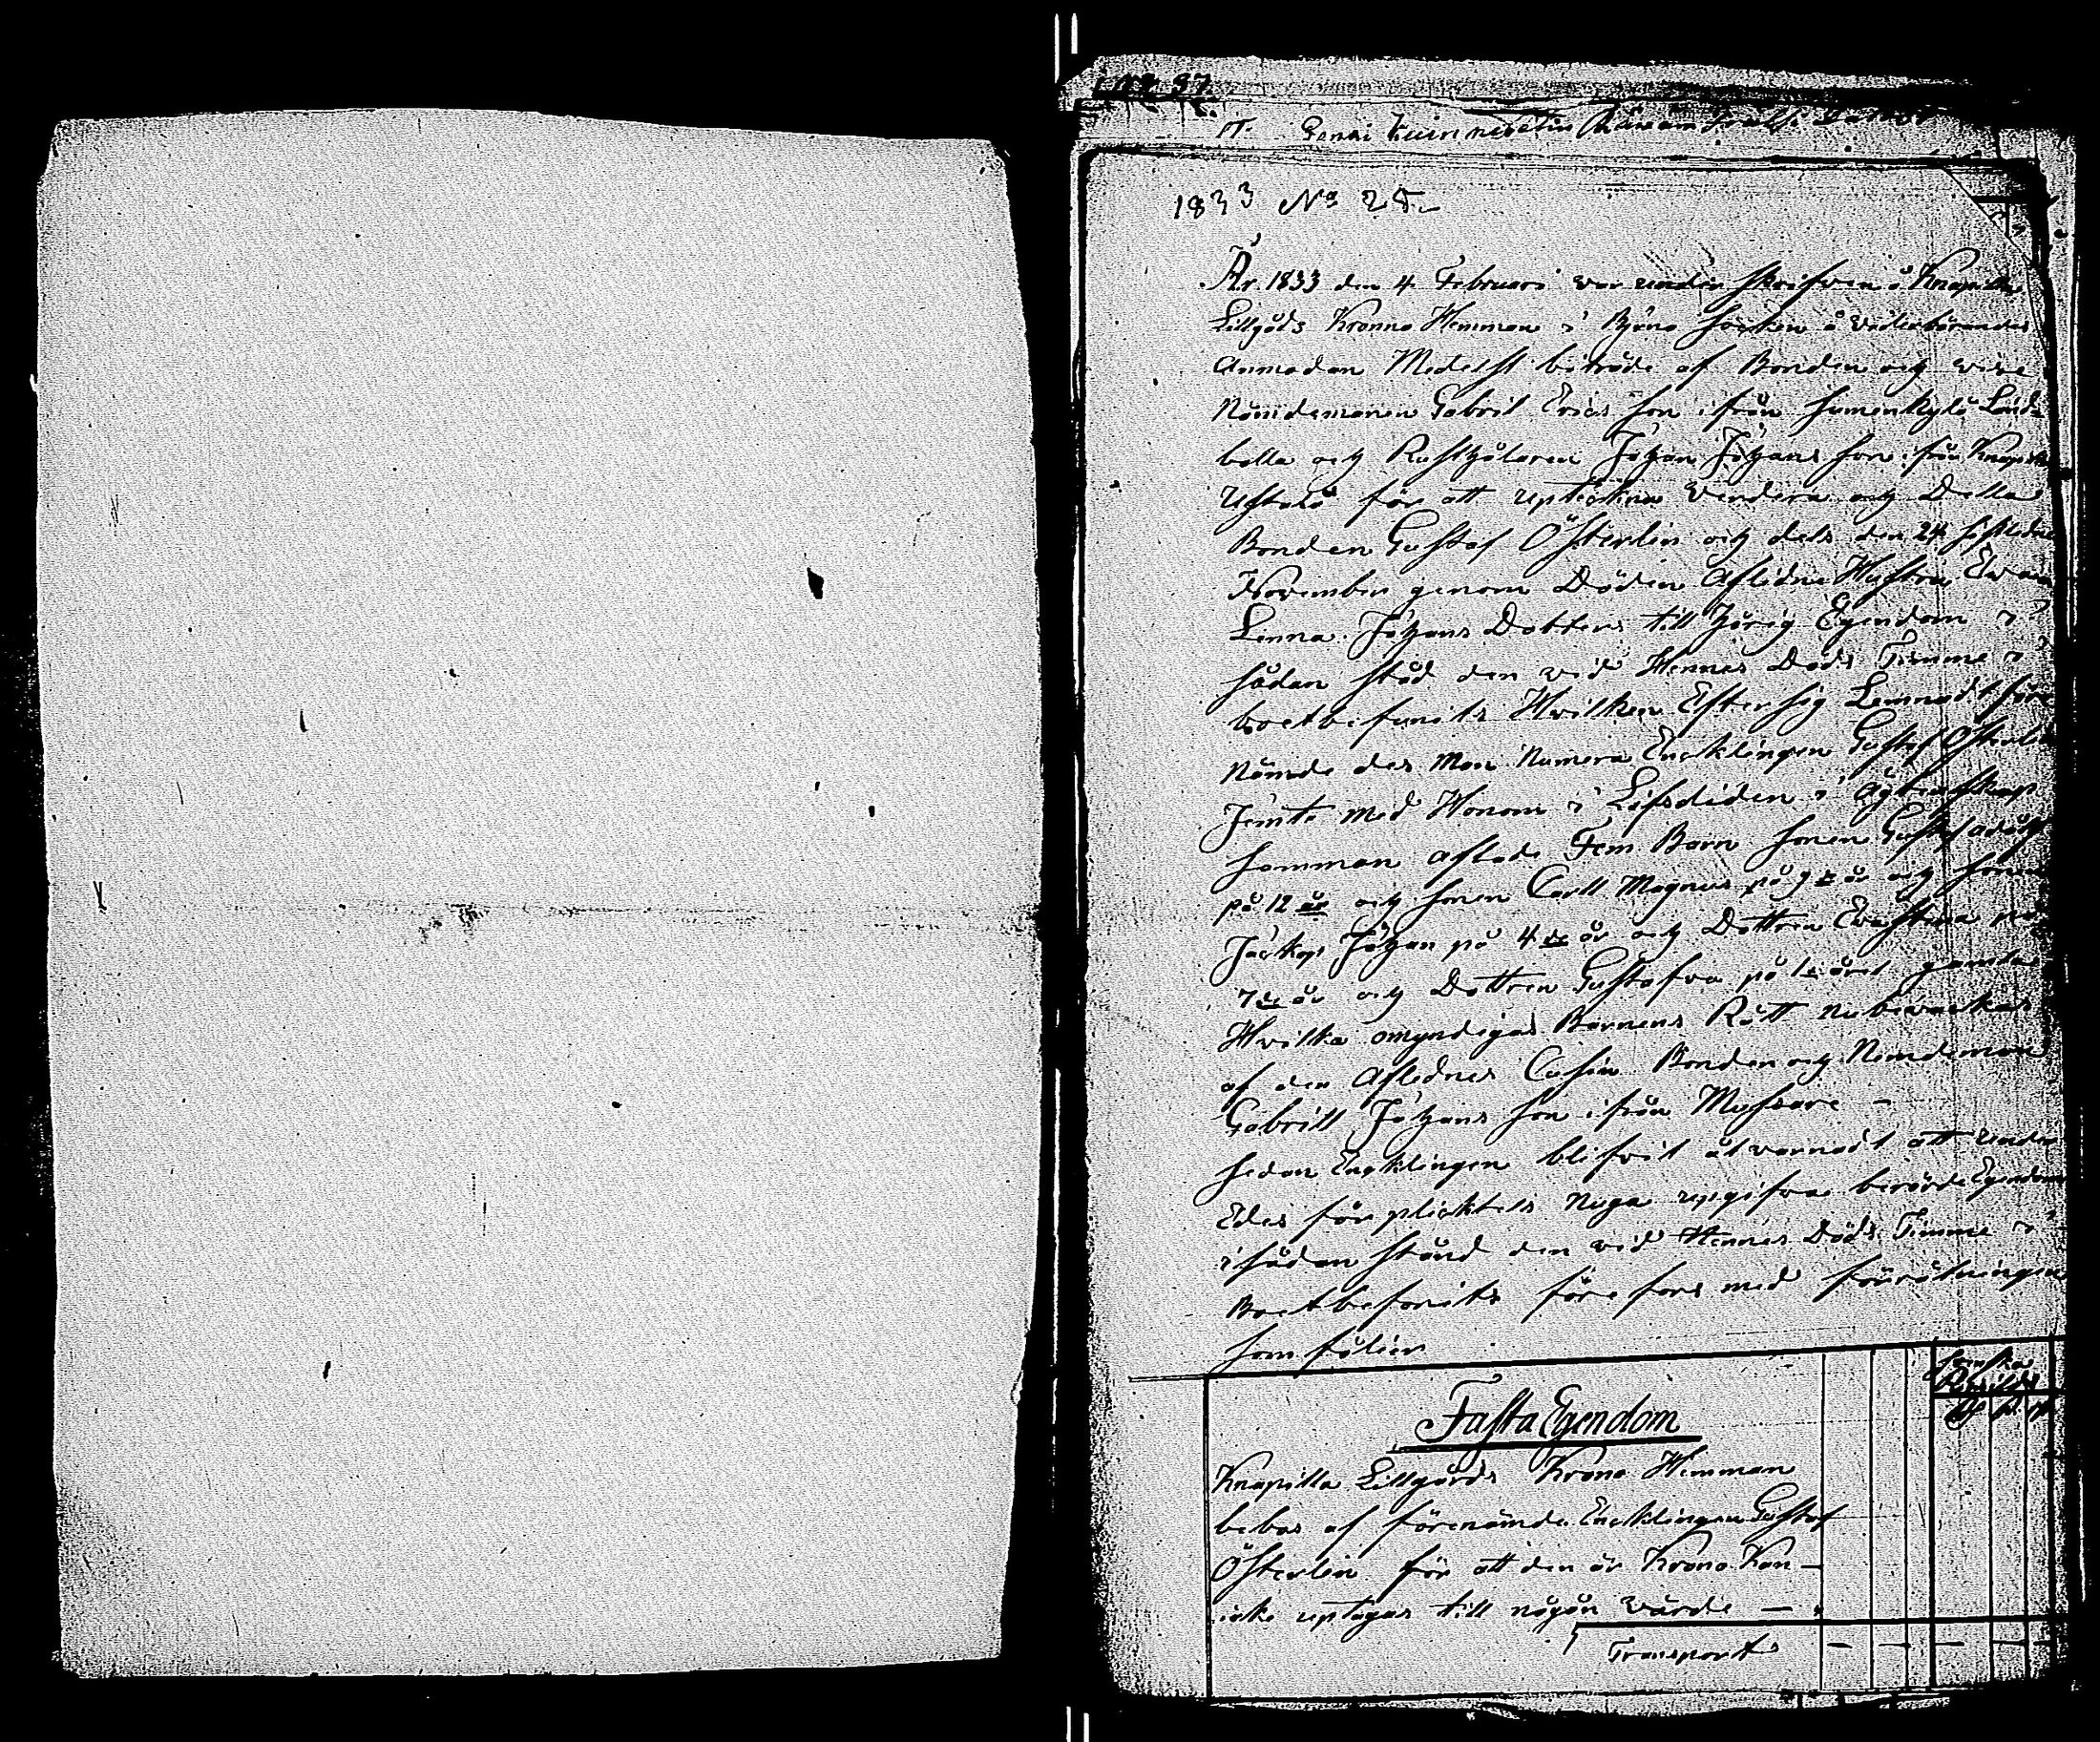 1833 No 25.
År 1833 den 4 Februari var under skrifven å Knapila
Lillgåds Krono Hemman i Bjärno Socken å vederbörandes
Anmodan Medelst biträde af Bonden och vice
Nämdemanen Gabril Ericsson ifrån
bolla och Rusthålaren Johan Johans son ifrån Knapila
Ustalo för att upteckna Värdera och Della
Bonden Gustaf Österlin och dets den 24 sistledne
November genom Döden Aflidne Hustru Eva
Lenna Johans Dotters till hörig Egendom i
sådan stod den vid Hennes Döds Timme i
boet befunits Hvilken Efter sig Lemnadt före
Nämde des Man Numera Encklingen Gustaf Österlin
Jemte med Honom i Lifstiden i Ägtenskap
samman aflade Fem Barn sonen Gustaf adolf
på 12 år och sonen Carll Magnus på 9 de år och sonen
Jackop Johan på 4 de år och Dottren Eva Stina på
7 de år och Dottren Gustafva på 1 året gamla
Hvilka omyndigas Barnens Rätt nu bevackas
af den Aflednes Cusin Bonden och Nemdeman
Gabrill Johans son ifrån Mussare –
sedan Encklingen blifvit åtvarnadt att under
Edes för plicktels Noga uppgifva berörde Egendom
i sådan stånd den vid Hennes Döds Timme i
Boet befonits före fors med förrätningen
som fölier
Fasta Egendom
Knapilla Lillgårds Krono Hemman
bebos af förenämde Encklingen Gustaf
Österlin för att den är Krono Kan –
icke uptagas till någån värde –
Transport – – – – –